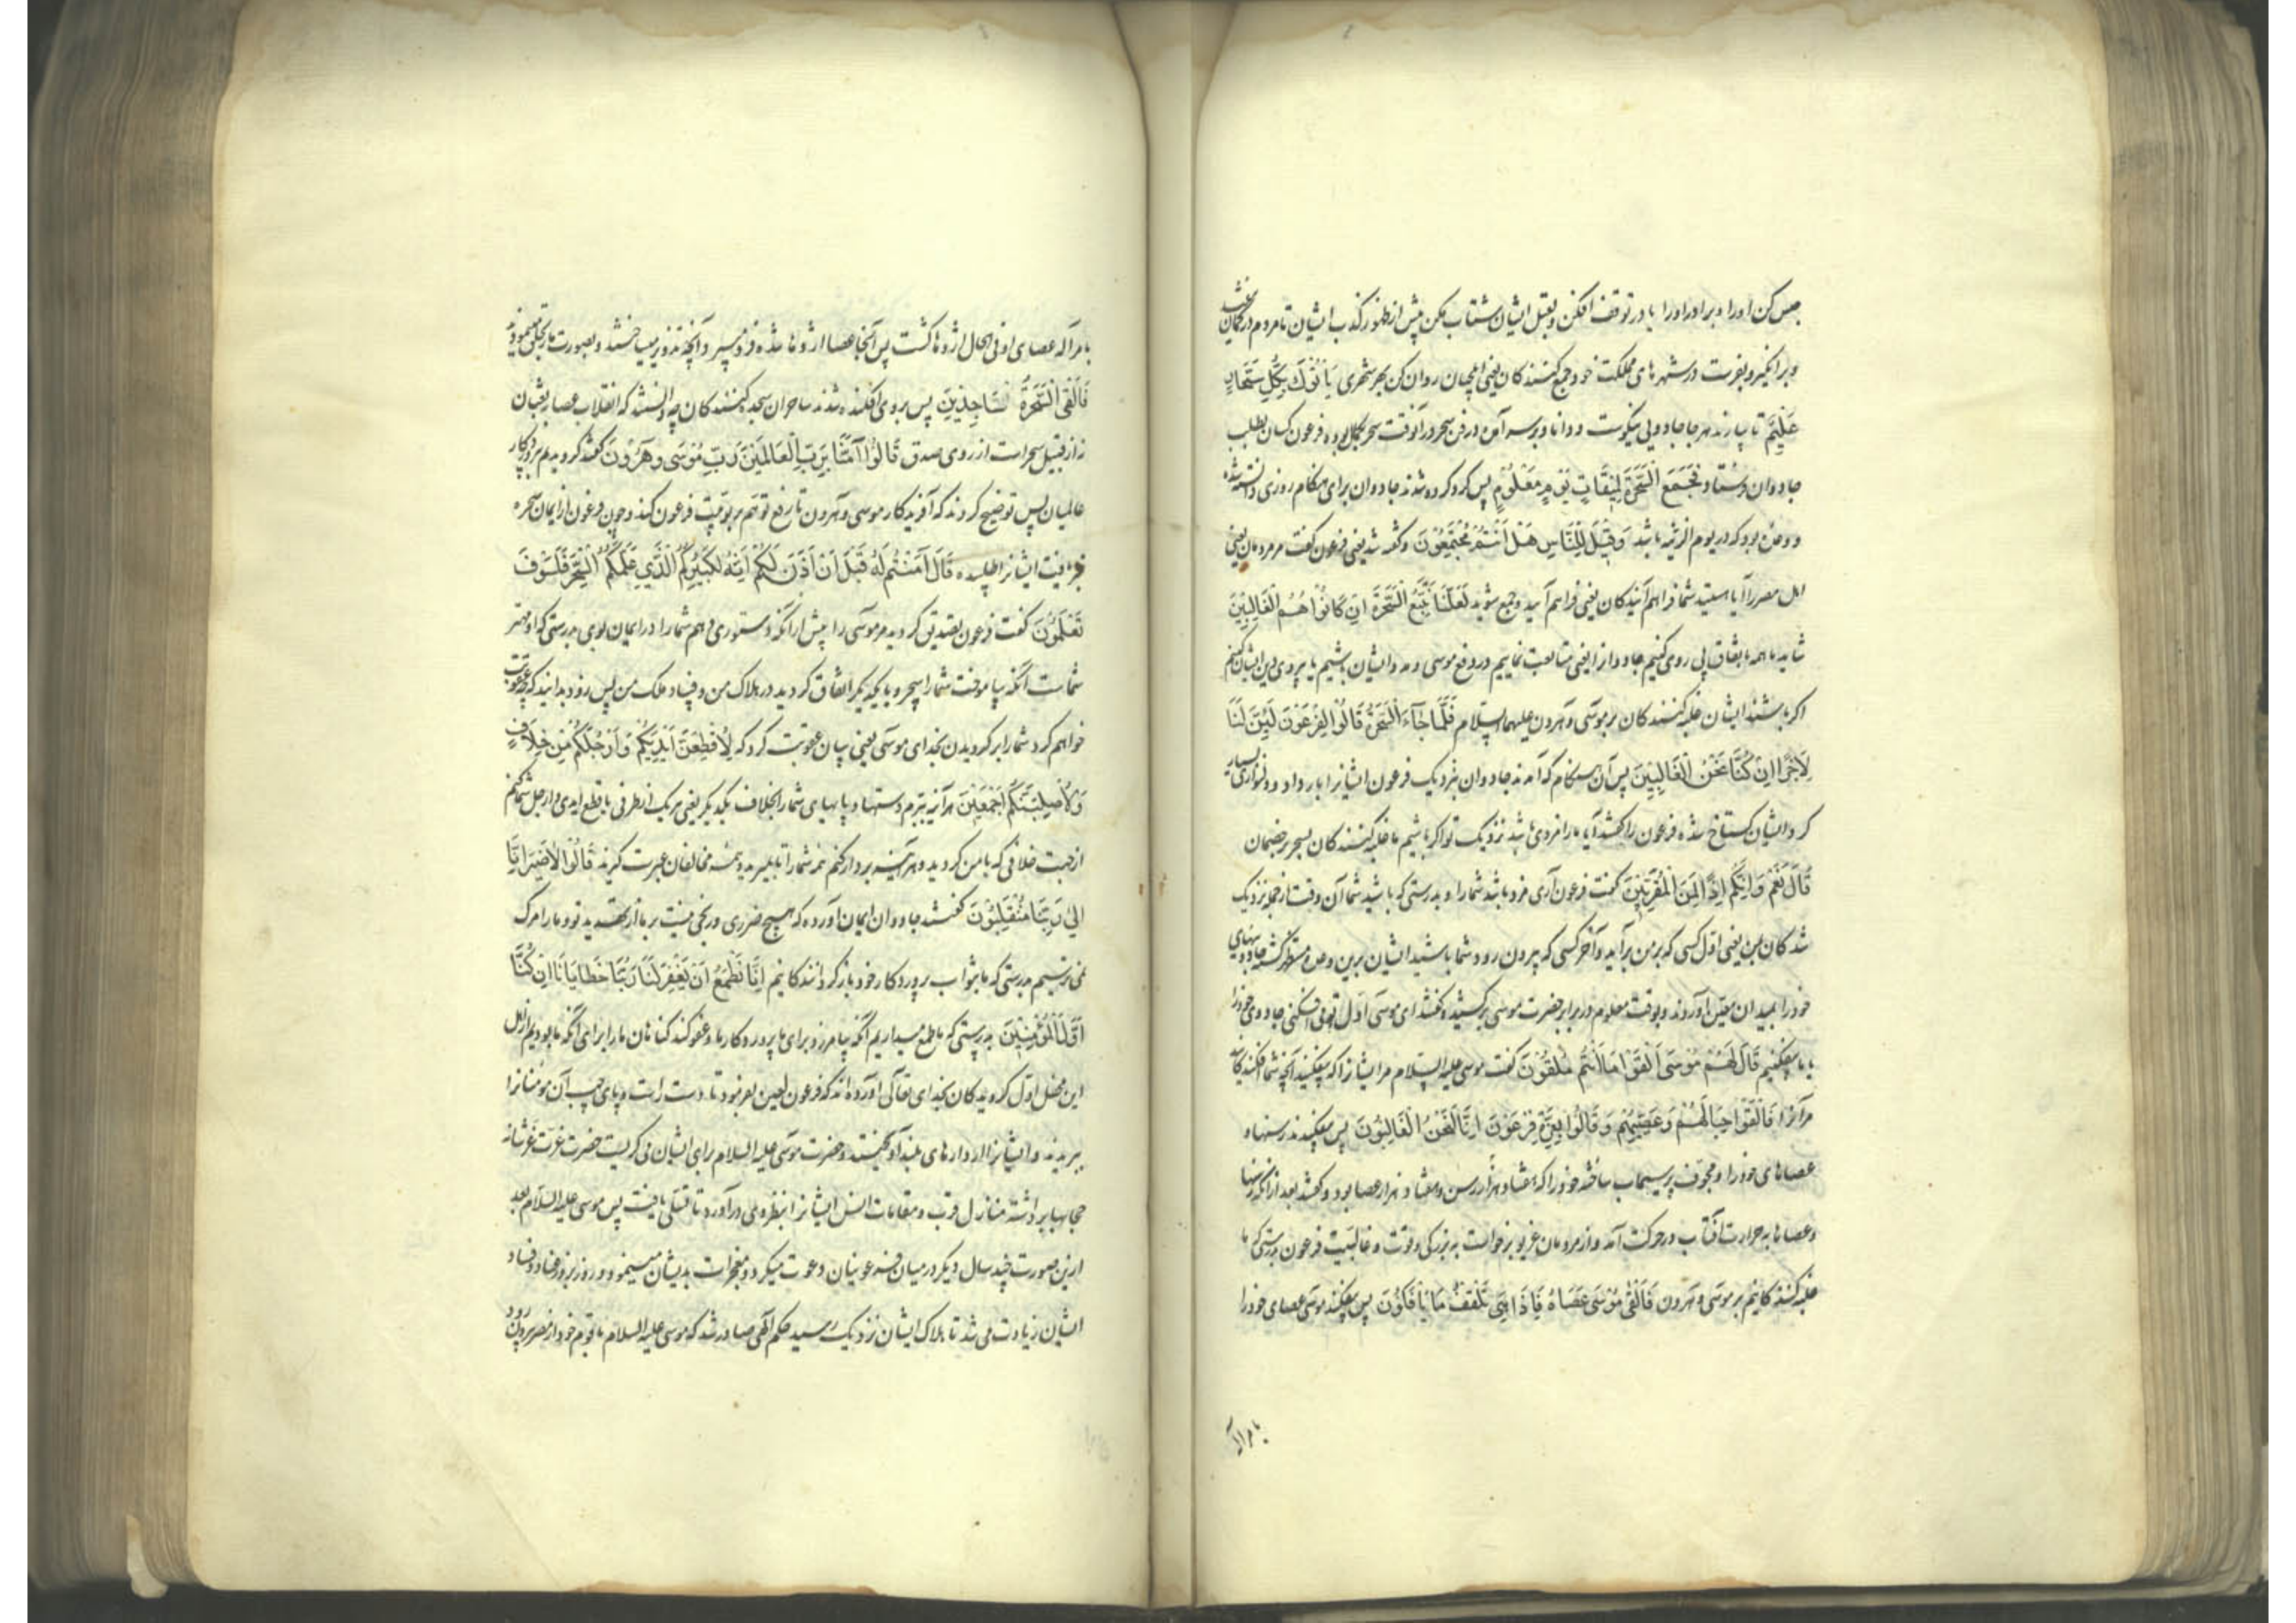 حبس کن اورا و برادر اورا یا در توقف افکن و بقتل ایشان شتاب مکن پیش از ظهور کذب ایشان تا مردم در گمان نیفتند
و برانگیز و بفرست در شهرهای مملکت خود جمع کنندگان یعنی ایلچیان روان کن بهر شهری یَأْتُوكَ بِكُلِّ سَحَّارٍ
عَلِيمٍ تا بیارند هرجا جادویی نیکوست و دانا و بر سر آمده در فن سحر و در آنوقت سحر بکمال بوده فرعون کسان بطلب
جادوان فرستاد فَجُمِعَ السَّحَرَةُ لِمِيقَاتِ يَوْمٍ مَعْلُومٍ پس گرد کرده شدند جادوان برای هنگام روزی دانسته شده
و وعده بود که در یوم الزینه باشد وَقِيلَ لِلنَّاسِ هَلْ أَنْتُمْ مُجْتَمِعُونَ و گفته شد یعنی فرعون گفت مر مردمان یعنی
اهل مصر را آیا هستید شما فراهم آیندگان یعنی فراهم آیید و جمع شوید لَعَلَّنَا نَتَّبِعُ السَّحَرَةَ إِنْ كَانُوا هُمُ الْغَالِبِينَ
شاید ما همه باتفاق پی روی کنیم جادوانرا یعنی متابعت نماییم در دفع موسی و مدد ایشان باشیم یا پیروی دین ایشان کنیم
اگر باشند ایشان غلبه کنندگان بر موسی و هرون علیهما السلام فَلَمَّا جَاءَ السَّحَرَةُ قَالُوا لِفِرْعَوْنَ أَئِنَّ لَنَا
لَأَجْرًا إِنْ كُنَّا نَحْنُ الْغَالِبِينَ پس آن هنگام که آمدند جادوان بنزدیک فرعون ایشانرا بار داد و دلنوازی بسیار
کرد ایشان گستاخ شده فرعون را گفتند آیا ما را مزدی باشد نزدیک تو اگر باشیم ما غلبه کنندگان بسحر بر خصمان
قَالَ نَعَمْ وَإِنَّكُمْ إِذًا لَمِنَ الْمُقَرَّبِينَ گفت فرعون آری مزد باشد شما را و بدرستی که باشید شما آن وقت از جمله نزدیک
شدگان بمن یعنی اول کسی که بر من برآید و آخر کسی که بیرون رود شما باشید ایشان برین وعده مستظهر گشته جادوییهای
خود را بمیدان معین آوردند و بوقت معلوم در برابر حضرت موسی صف برکشیدند گفتند ای موسی اول تو می افکنی جادوی خود را
یا ما بیفکنیم قَالَ لَهُمْ مُوسَى أَلْقُوا مَا أَنْتُمْ مُلْقُونَ گفت موسی علیه السلام مر ایشانرا که بیفکنید آنچه شما افکنندگانید
مر آنرا فَأَلْقَوْا حِبَالَهُمْ وَعِصِيَّهُمْ وَقَالُوا بِعِزَّةِ فِرْعَوْنَ إِنَّا لَنَحْنُ الْغَالِبُونَ پس بیفکندند رسنها و
عصاهای خود را و مجوف پر سیماب ساخته خود را که هفتاد هزار رسن و هفتاد هزار عصا بود و گفتند بعد از آنکه رسنها
و عصاها به حرارت آفتاب در حرکت آمد و از مردمان غریو برخواست به بزرگی و قوت و غالبیت فرعون بدرستی که ما
غلبه کنندگانیم بر موسی و هرون فَأَلْقَى مُوسَى عَصَاهُ فَإِذَا هِيَ تَلْقَفُ مَا يَأْفِكُونَ پس بیفکند موسی عصای خود را
بامر اله
بامر اله عصای او فی الحال اژدها گشت پس آنجا عصا اژدها شده فرو میبرد آنچه تزویر میساختند و بصورت مار بخلق مینمودند
فَأُلْقِيَ السَّحَرَةُ سَاجِدِينَ پس بروی افکنده شدند ساحران سجده کنندگان چه دانستند که انقلاب عصا به ثعبان
نه از قبیل سحر است از روی صدق قَالُوا آمَنَّا بِرَبِّ الْعَالَمِينَ رَبِّ مُوسَى وَهَرُونَ گفتند گرویدیم بپروردگار
عالمیان پس توضیح کردند که آفریدگار موسی و هرون تا رفع توهم ربوبیت فرعون کند و چون فرعون از ایمان سحره
خبر یافت ایشانرا طلبیده قَالَ آمَنْتُمْ لَهُ قَبْلَ أَنْ آذَنَ لَكُمْ إِنَّهُ لَكَبِيرُكُمُ الَّذِي عَلَّمَكُمُ السِّحْرَ فَلَسَوْفَ
تَعْلَمُونَ گفت فرعون تصدیق کردید مر موسی را پیش از آنکه دستوری دهم شما را در ایمان بوی بدرستی که او مهتر
شماست آنکه بیاموخت شما را سحر و با یکدیگر اتفاق کردید در هلاک من و فساد ملک من پس زود بدانید که چه عقوبت
خواهم کرد شما را بر گرویدن بخدای موسی یعنی بیان عقوبت کرد که لَأُقَطِّعَنَّ أَيْدِيَكُمْ وَأَرْجُلَكُمْ مِنْ خِلَافٍ
وَلَأُصَلِّبَنَّكُمْ أَجْمَعِينَ هر آینه ببرم دستها و پایهای شما را بخلاف یکدیگر یعنی هر یک از طرفی یا قطع ایدی و ارجل شما کنم
از جهت خلافی که با من کردید و هر آینه بر دار کنم مر شما را تا بمیرید و همه مخالفان عبرت گیرند قَالُوا لَا ضَيْرَ إِنَّا
إِلَى رَبِّنَا مُنْقَلِبُونَ گفتند جادوان ایمان آورده که هیچ ضرری و رنجی نیست بر ما از تهدید تو و ما را مرگ
نمی ترسیم بدرستی که ما بثواب پروردگار خود بازگردانندگانیم إِنَّا نَطْمَعُ أَنْ يَغْفِرَ لَنَا رَبُّنَا خَطَايَانَا أَنْ كُنَّا
أَوَّلَ الْمُؤْمِنِينَ بدرستی که ما طمع میداریم آنکه بیامرزد برای ما پروردگار ما و عفو کند گناهان ما را برای آنکه ما بودیم از اهل
این محفل اول گرویدگان بخدای تعالی آورده اند که فرعون لعین بفرمود تا دست راست و پای چپ آن مومنانرا
ببریدند و ایشانرا از دارهای بلند آویختند و حضرت موسی علیه السلام برای ایشان می گریست حضرت عزت عزشانه
حجابها برداشته منازل قرب و مقامات انس ایشانرا بنظر وی درآورد تا تسلی یافت پس موسی علیه السلام بعد
ازین صورت چند سال دیگر در میان فرعونیان دعوت میکرد و معجزات بدیشان مینمود و روز بروز عناد و فساد
ایشان زیادت می شد تا هلاک ایشان نزدیک رسید حکم الهی صادر شد که موسی علیه السلام با قوم خود از مصر بیرون رود